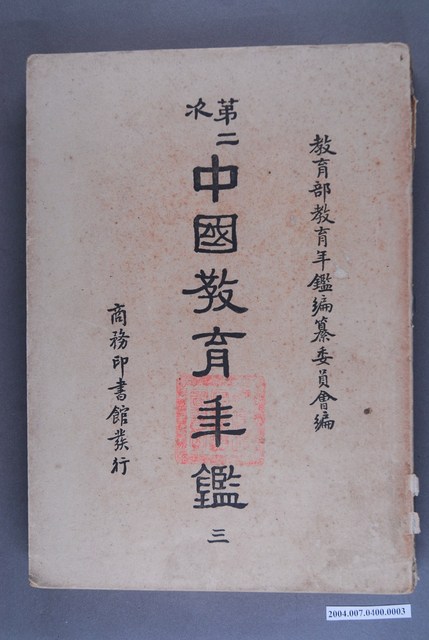 教育部教育年鑑編纂委員會編
第二次
中國教育年鑑
三
商務印書館發行
2004.007.0400.0003